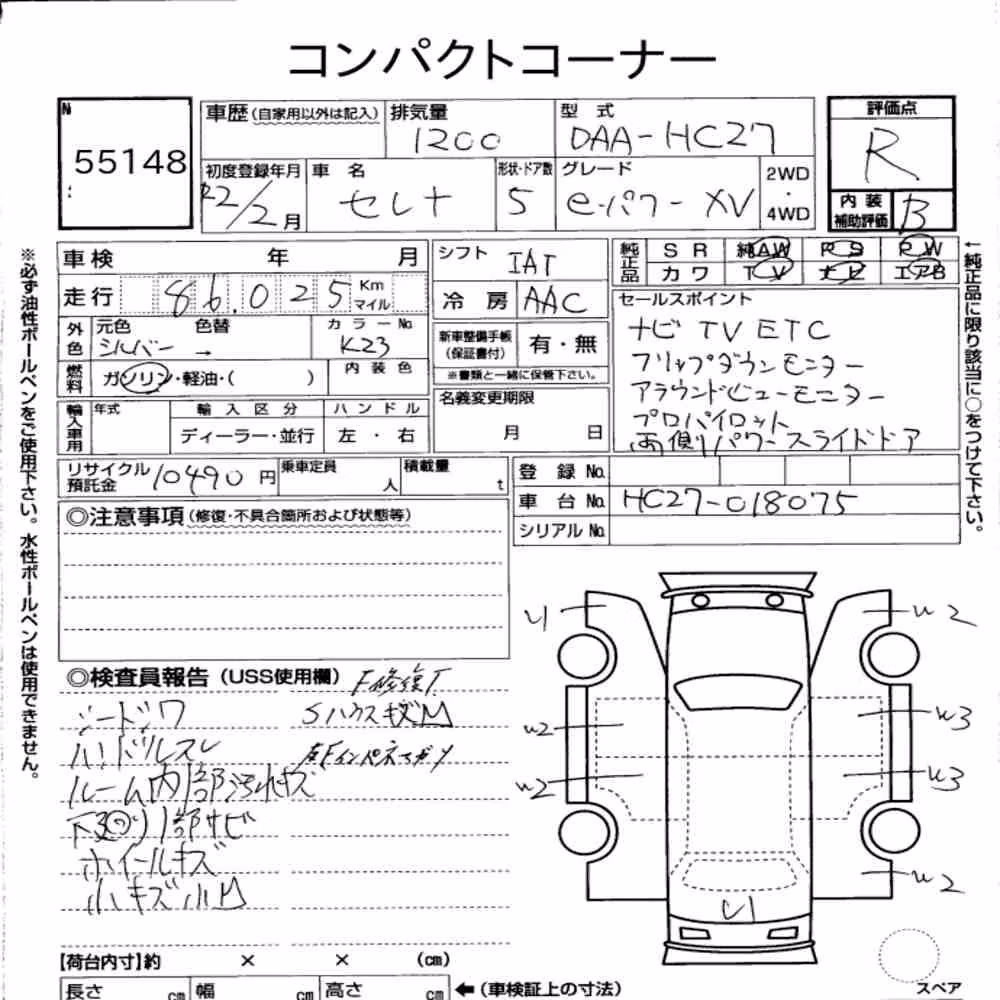 コンパクトコーナー
N
55148
車歴(自家用以外は記入)
排気量
1200
型 式
DAA-HC27
評価点
R
初度登録年月
R2/2月
車 名
セレナ
形状・ドア数
5
グレード
e-パワー XV
2WD
・
4WD
内装
補助評価
B
※必ず油性ボールペンをご使用下さい。水性ボールペンは使用できません。
車検 年 月
走行 86,025 Km
マイル
外色
元色 色替
シルバー →
カラーNo.
K23
燃料
ガソリン・軽油・( )
内装色
輸入車用
年式
輸入区分
ディーラー・並行
ハンドル
左・右
シフト
IAT
冷房
AAC
新車整備手帳
(保証書付)
有・無
※書類と一緒に保管下さい。
名義変更期限
月 日
純正品
SR 純AW PS PW
カワ TV ナビ エアB
セールスポイント
ナビ TV ETC
フリップダウンモニター
アラウンドビューモニター
プロパイロット
両側パワースライドドア
←純正品に限り該当に○をつけて下さい。
リサイクル
預託金
10490円
乗車定員
人
積載量
t
登録No.
車台No. HC27-018075
シリアルNo.
◎注意事項(修復・不具合箇所および状態等)
◎検査員報告(USS使用欄)
F修復T
シートシワ
SハウスキズM
ハンドルスレ
ルーム内部汚れキズ
下廻り1部サビ
ホイールキズ
小キズ小M
U1
W2
W2
W3
W2
W3
W2
U1
【荷台内寸】約 × × (cm)
長さ cm
幅 cm
高さ cm
←(車検証上の寸法)
スペア